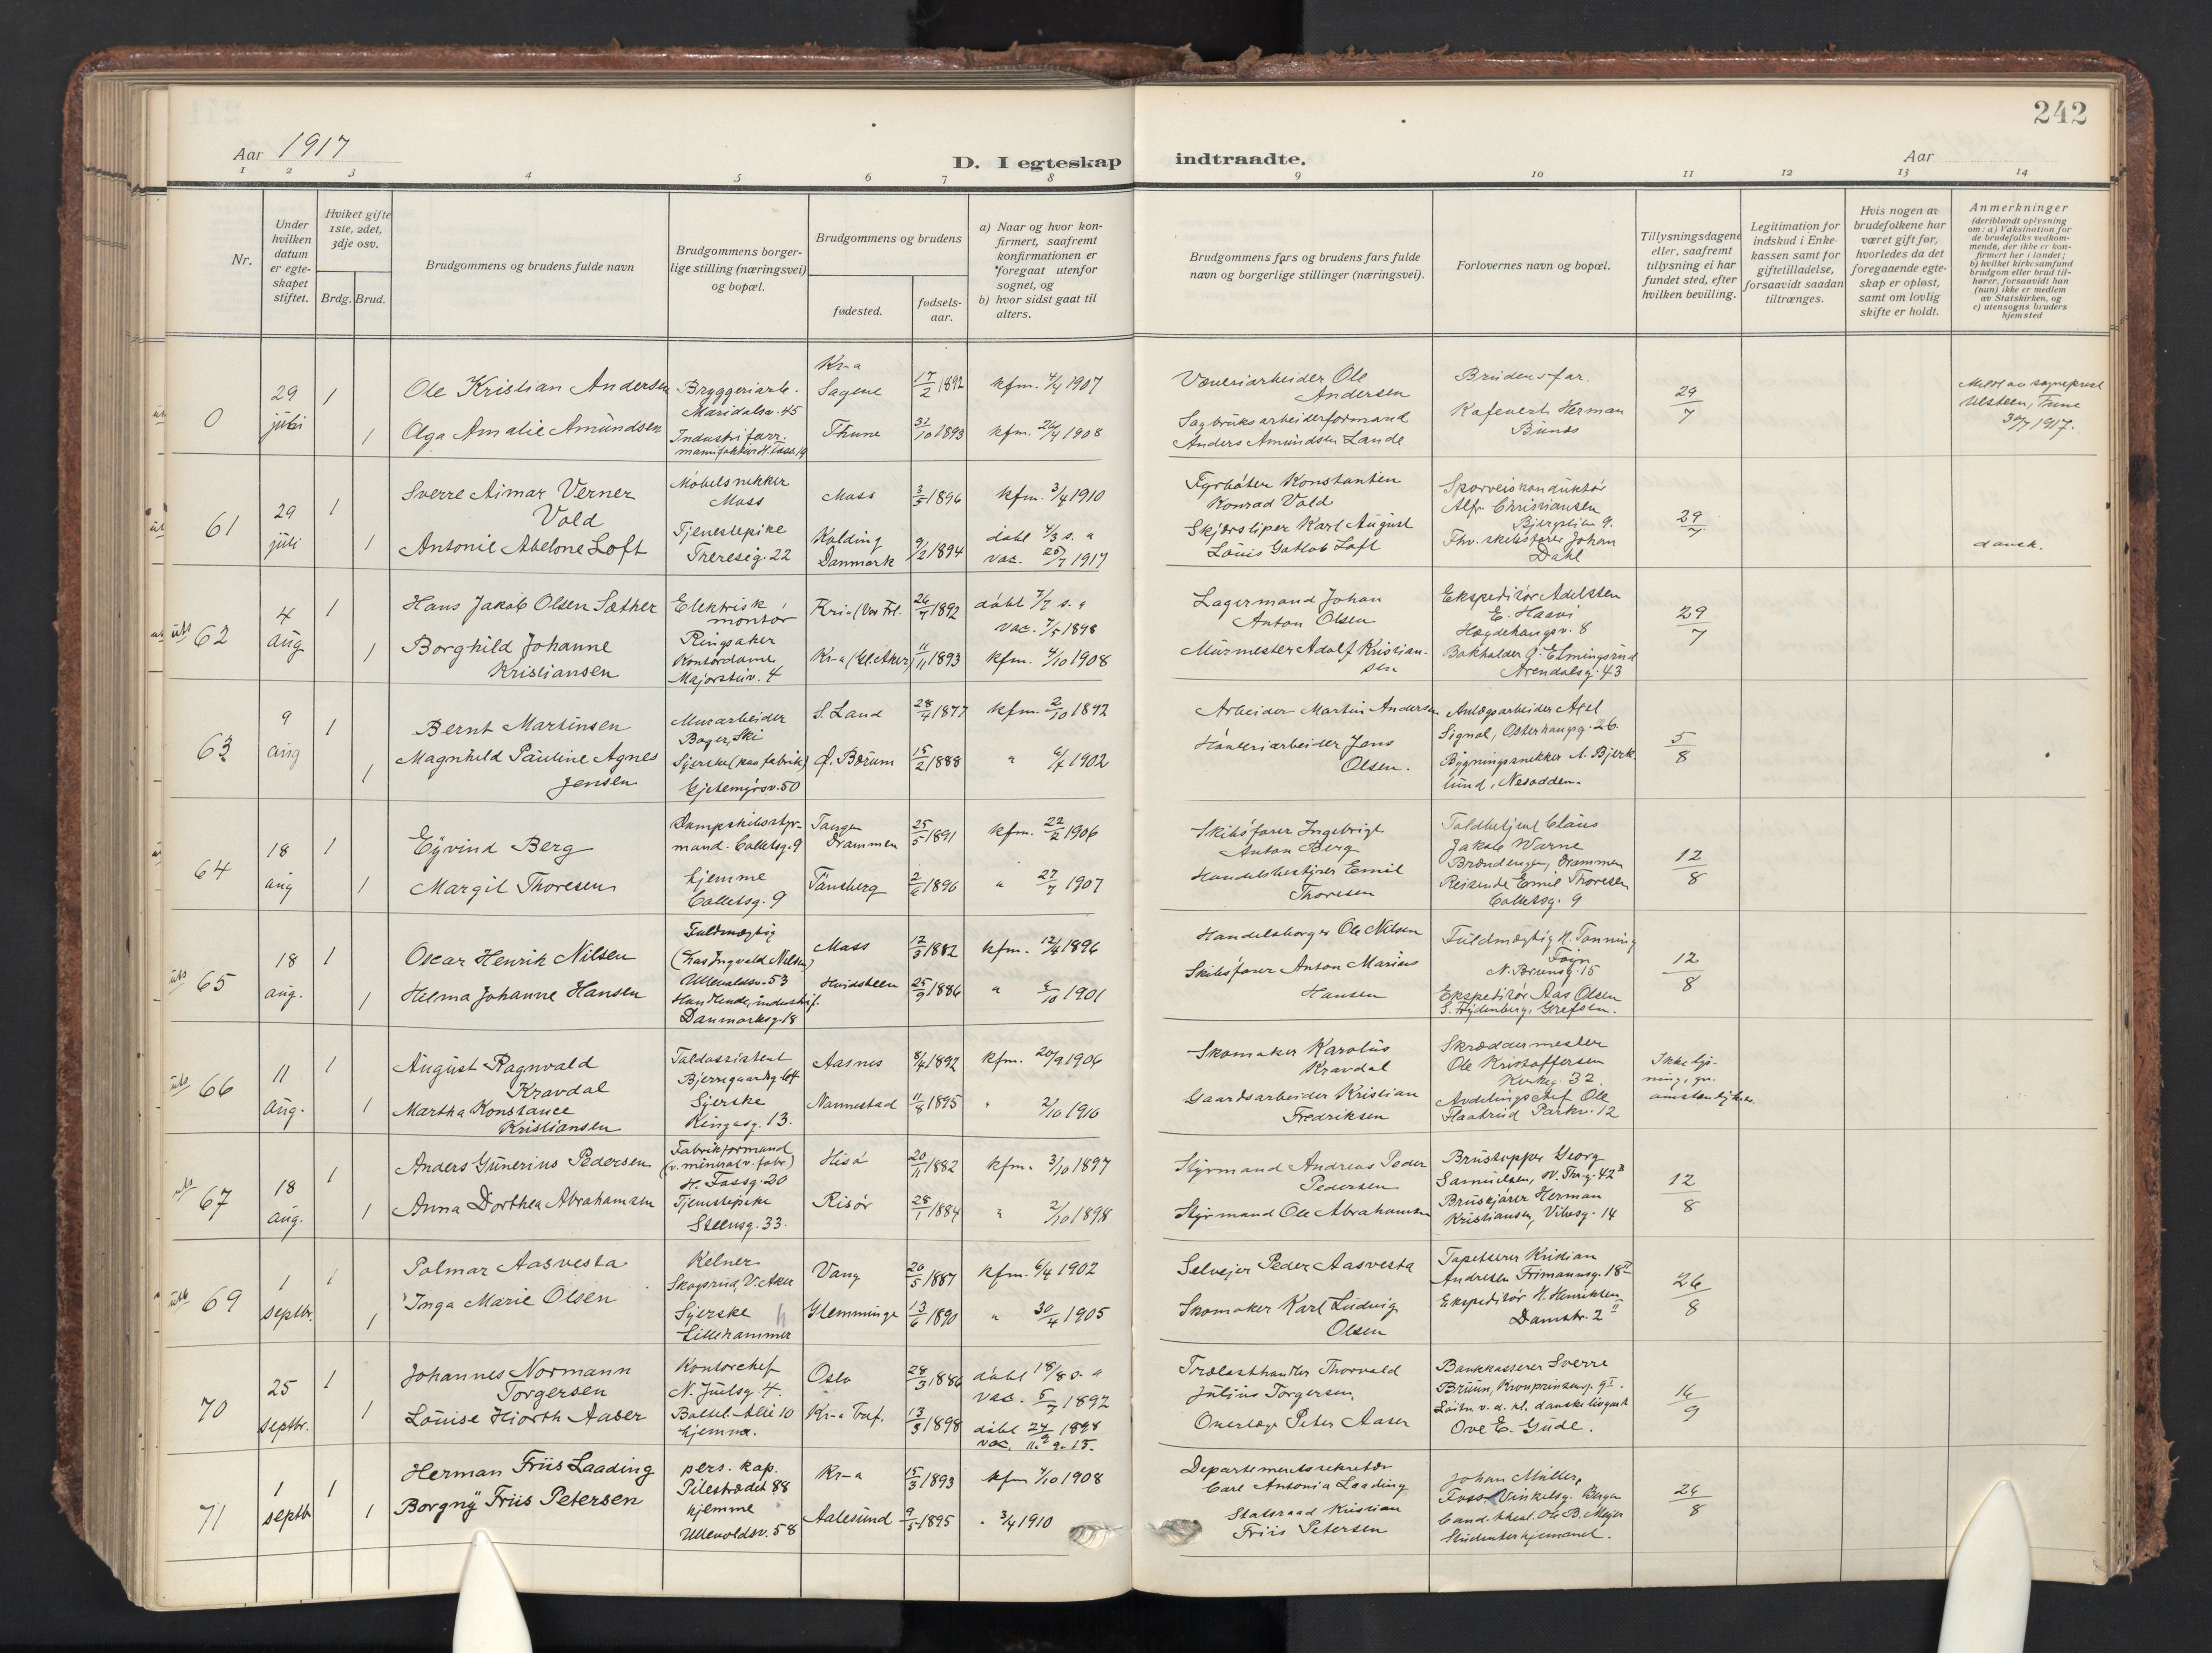 242
Aar 1917
D. I egteskap indtraadte.
Aar
1 2 3 4 5 6 7 8 9 10 11 12 13 14
Nr.
Under hvilken datum er egteskapet stiftet.
Hviket gifte 1ste, 2det, 3dje osv.
Brdg. Brud.
Brudgommens og brudens fulde navn
Brudgommens borgerlige stilling (næringsvei) og bopæl.
Brudgommens og brudens
fødested.
fødselsaar.
a) Naar og hvor konfirmert, saafremt konfirmationen er foregaat utenfor sognet, og
b) hvor sidst gaat til alters.
Brudgommens fars og brudens fars fulde navn og borgerlige stillinger (næringsvei).
Forlovernes navn og bopæl.
Tillysningsdagene eller, saafremt tillysning ei har fundet sted, efter hvilken bevilling.
Legitimation for indskud i Enkekassen samt for giftetilladelse, forsaavidt saadan tiltrænges.
Hvis nogen av brudefolkene har været gift før, hvorledes da det foregaaende egteskap er opløst, samt om lovlig skifte er holdt.
Anmerkninger
(deriblandt oplysning om: a) Vaksination for de brudefolks vedkommende, der ikke er konfirmert her i landet; b) hvilket kirkesamfund brudgom eller brud tilhører, forsaavidt han (hun) ikke er medlem av Statskirken, og c) utensogns bruders hjemsted
0
29 juli
1
Ole Kristian Andersen
Bryggeriarb. Maridalsv. 45
Kr-a Sagene
17/2 1892
kfm. 7/4 1907
Væveriarbeider Ole Andersen
Brudens far.
29/7
1
Olga Amalie Amundsen
Thune
31/10 1893
kfm. 26/4 1908
Sagbruksarbeiderformand Anders Amundsen Lande
Kafevert Herman
30/7 1917.
61
29 juli
1
Sverre Aimar Verner Vold
Møbelsnekker Moss
Moss
3/5 1896
kfm. 3/4 1910
Fyrbøter Konstantin Konrad Vold
Sporveiskonduktør Alfr. Christiansen
29/7
1
Antonie Abelone Loft
Tjenestepike Theresesg. 22
Kolding Danmark
9/2 1894
døbt 4/3 s. a vac. 25/7 1917
Skjærsliper Karl August Louis Gotlob Loft
Fhv. skibsfører Johan Dahl
dansk.
62
4 aug
1
Hans Jakob Olsen Sæther
Elektrisk montør Ringsaker
26/4 1892
døbt 7/7 s. a vac. 7/5 1898
Lagermand Johan Anton Olsen
Ekspeditør Adelsten E. Hasvi Hegdehaugsv. 8
29/7
1
Borghild Johanne Kristiansen
Kontordame Majorstuv. 4
Kr-a (Gl. Aker)
11/11 1893
kfm. 4/10 1908
Murmester Adolf Kristiansen
Arendalsg. 43
63
9 aug
1
Bernt Martinsen
Murarbeider Bøger, Ski
S. Land
28/4 1877
kfm. 2/10 1892
Arbeider Martin Andersen
Anlægsarbeider Axel Signal, Osterhausg. 26
5/8
1
Magnhild Pauline Agnes Jensen
Gjetemyrsv. 50
Ø. Bærum
15/2 1888
" 6/4 1902
Høvleriarbeider Jens Olsen.
Bygningssnekker A. Bjerklund, Nesodden.
64
18 aug
1
Eyvind Berg
Dampskibsstyrmand. Colletsg. 9
Tangen Drammen
25/5 1891
kfm. 22/2 1906
Skibsfører Ingebrigt Anton Berg
Toldbetjent Claus Jakob Warne
12/8
1
Margit Thoresen
hjemme Colletsg. 9
Tønsberg
2/6 1896
" 27/7 1907
Handelsbestyrer Emil Thoresen
Reisende Emil Thoresen Colletsg. 9
65
18 aug.
1
Oscar Henrik Nilsen
Fuldmægtig (hos Ingvald Nilsen) Ullevaldsv. 53
Moss
12/3 1882
kfm. 12/4 1896
Handelsborger Ole Nilsen
Fuldmægtig H. Tonning Føyn N. Brunsg. 15
12/8
1
Helma Johanne Hansen
Danmarksg. 18
Hvidsteen
25/9 1886
" 6/10 1901
Skibsfører Anton Marius Hansen
Ekspeditør Aas Olsen
66
11 aug.
1
August Ragnvald Kravdal
Toldassistent Bjerregaardsg. 64
Aasnes
8/4 1892
kfm. 20/9 1906
Skomaker Karolus Kravdal
Skræddermester Ole Kristoffersen Kirkeg. 32.
Ikke lysning, gr. omstændigheter
1
Martha Konstance Kristiansen
Syerske Ringsg. 13.
Nannestad
11/8 1895
" 2/10 1910
Gaardsarbeider Kristian Fredriksen
Avdelingschef Ole Haabrud Parkv. 12
67
18 aug.
1
Anders Gunerius Pedersen
Fabrikformand (v. mineralv. fabr.) H. Fossg. 20
Hisø
20/11 1882
kfm. 3/10 1897
Styrmand Andreas Peder Pedersen
Brustopper Georg Samuelsen
12/8
1
Anna Dorthea Abrahamsen
Tjenestepike Steensg. 33.
Risør
28/1 1884
" 2/10 1898
Styrmand Ole Abrahamsen
Bruskjører Herman Kristiansen, Vibesg. 14
69
1 septbr.
1
Palmar Aasvesta
Kelner Skogsrud, V. Aker
Vang
20/5 1887
kfm. 6/4 1902
Selveier Peder Aasvesta
Tapetserer Kristian Andresen Frimannsg. 18 II
26/8
1
Inga Marie Olsen
Syerske Lillehammer
Glemminge
13/6 1890
" 30/4 1905
Skomaker Karl Ludvig Olsen
Ekspeditør H. Henriksen Damstr. 2 II
70
25 septbr.
1
Johannes Normann Torgersen
Kontorchef N. Juelsg. 4.
Oslo
28/3 1886
døbt 18/8 s. a vac. 5/7 1892
Trælasthandler Thorvald Julius Torgersen.
Bankkasserer Sverre Bruun, Kronprinsensg. 9 I.
16/9
1
Louise Hiorth Aaser
hjemme.
Kr-a Tref.
13/3 1898
døbt 24/9 1898
Overlæge Peter Aaser
Løitn. v. d. kl. danske livgard Ove E. Gude.
71
1 septb
1
Herman Friis Laading
pers. kap. Pilestrædet 88
Kr-a
15/3 1893
kfm 4/10 1908
Departementssekretær Carl Antonia Laading
Johan Müller,
26/8
1
Borgny Friis Petersen
hjemme Ullevoldsv. 58
Aalesund
9/5 1895
" 3/4 1910
Statsraad Kristian Friis Petersen
Cand. theol. Ole B. Meyer Studenterhjemmet.